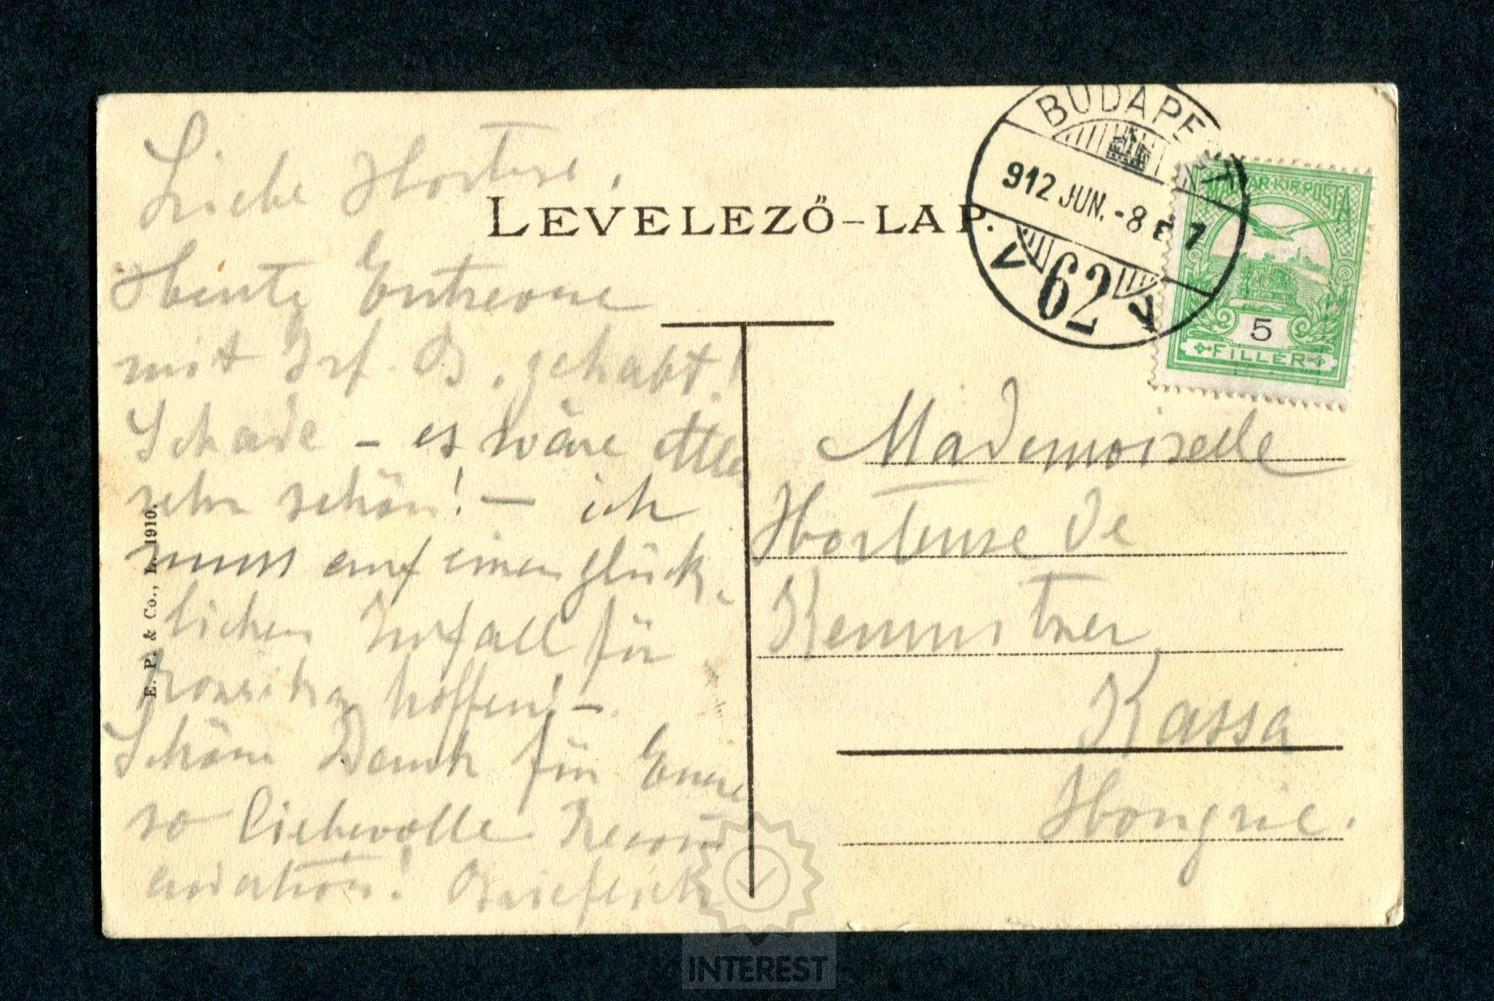 Liebe Hortense,
Heute Entrevue
mit Grf. B. gehabt!
Schade – es wäre
sehr schön! – ich
muss auf einen glück-
lichen Zufall für
hoffen! –
Schönen Dank für Euere
so liebevolle
Brieflich
E. P. & Co., 1910.
LEVELEZŐ-LAP.
BUDAPEST
912 JUN. -8
V 62 V
MAGYAR·KIR·POSTA
5
FILLÉR
Mademoiselle
Hortense de
Kassa
Hongrie.
INTEREST